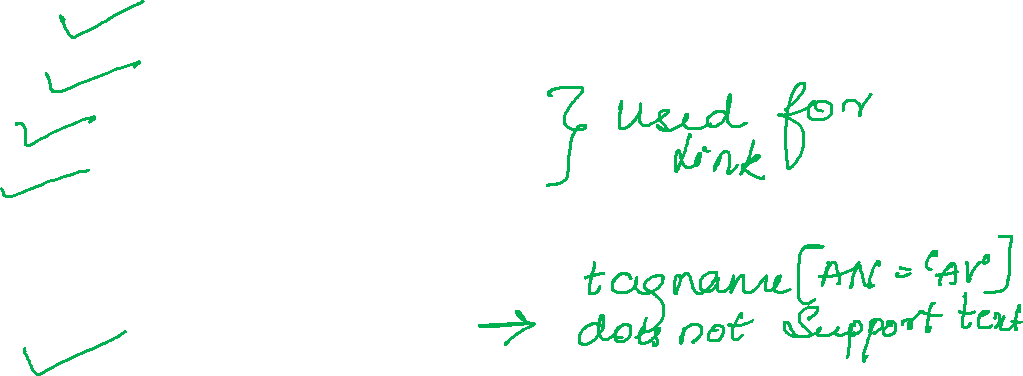 used for
Link
tagname[AN = 'AV']
does not support text